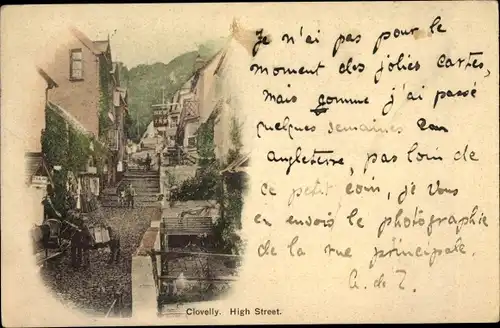 Je n'ai pas pour le
moment des jolies cartes,
mais comme j'ai passé
quelques semaines en
Angleterre, pas loin de
ce petit coin, je vous
en envois le photographie
de la rue principale.
A. de T.
Clovelly. High Street.